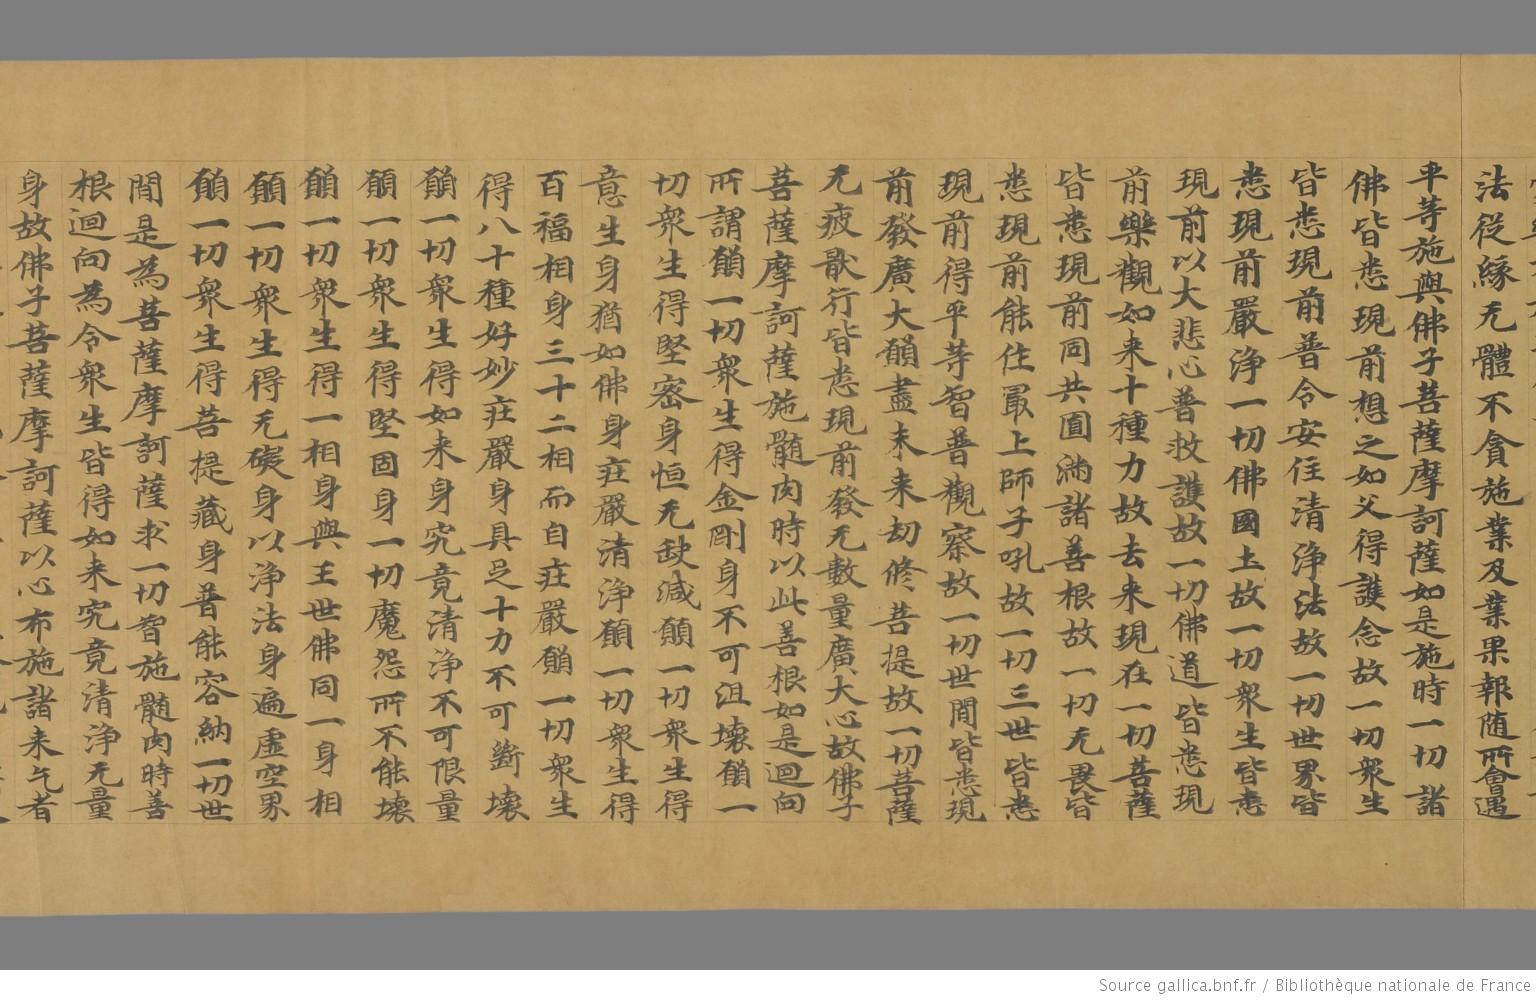 法從緣无體不貪施業及業果報随所會遇
平等施與佛子菩薩摩訶薩如是施時一切諸
佛皆悉現前想之如父得護念故一切衆生
皆悉現前普令安住清淨法故一切世界皆
悉現前嚴淨一切佛國土故一切衆生皆悉
現前以大悲心普救護故一切佛道皆悉現
前樂觀如来十種力故去来現在一切菩薩
皆悉現前同共圓滿諸善根故一切无畏皆
悉現前能住冣上師子吼故一切三世皆悉
現前得平等智普觀察故一切世間皆悉現
前發廣大願盡未来劫修菩提故一切菩薩
无疲猒行皆悉現前發无數量廣大心故佛子
菩薩摩訶薩施髓肉時以此善根如是迴向
所謂願一切衆生得金剛身不可沮壞願一
切衆生得堅密身恒无缺減願一切衆生得
意生身猶如佛身莊嚴清淨願一切衆生得
百福相身三十二相而自莊嚴願一切衆生
得八十種好妙莊嚴身具足十力不可斷壞
願一切衆生得如来身究竟清淨不可限量
願一切衆生得堅固身一切魔怨所不能壞
願一切衆生得一相身與三世佛同一身相
願一切衆生得无礙身以淨法身遍虛空界
願一切衆生得菩提藏身普能容納一切世
間是為菩薩摩訶薩求一切智施髓肉時善
根迴向為令衆生皆得如来究竟清淨无量
身故佛子菩薩摩訶薩以心布施諸来乞者